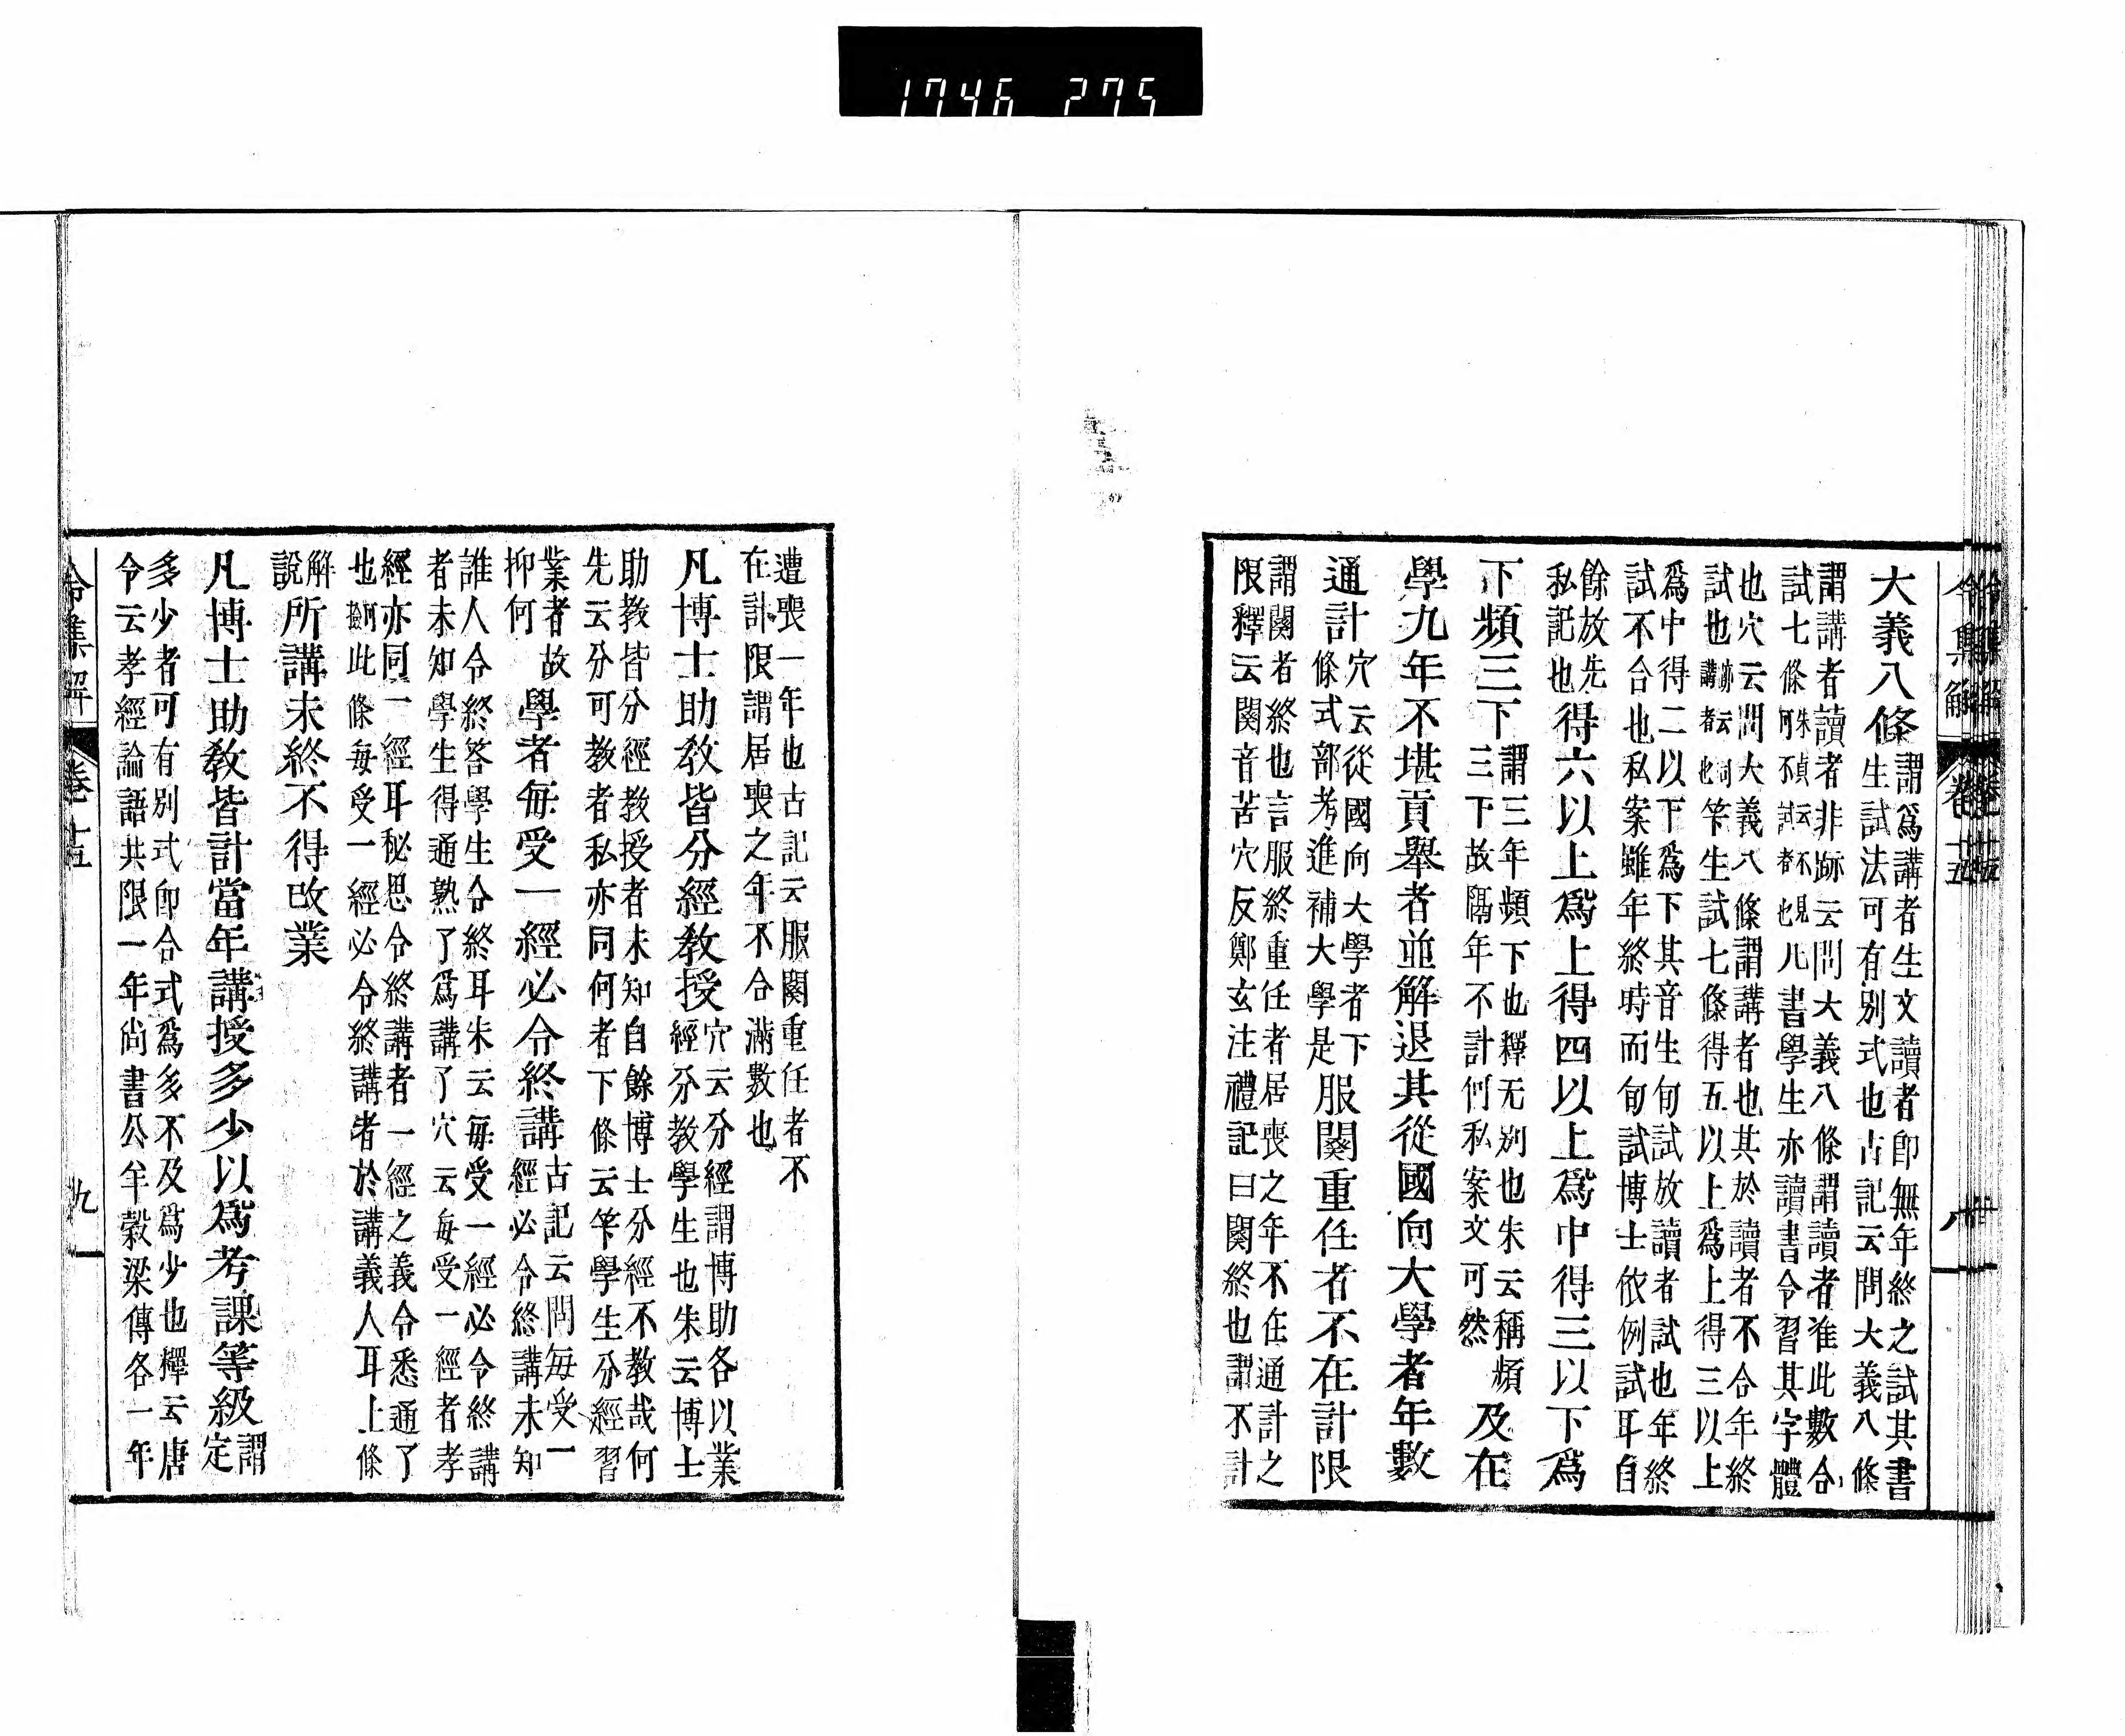 1746 275
令集解 卷十五 八
大義八條謂爲講者生文讀者卽無年終之試其書
生試法可有別式也古記云問大義八條
謂講者讀者非跡云問大義八條謂讀者准此數合
試七條朱貞云不見何不試者也凡書學生亦讀書令習其字體
也穴云問大義八條謂講者也其於讀者不合年終
試也跡云同講者也笇生試七條得五以上爲上得三以上
爲中得二以下爲下其音生旬試放讀者試也年終
試不合也私案雖年終時而旬試博士依例試耳自
餘放先
私記也得六以上爲上得四以上爲中得三以下爲
下頻三下謂三年頻下也釋无別也朱云稱頻
三下故隔年不計何私案文可然及在
學九年不堪貢擧者並解退其從國向大學者年數
通計穴云從國向大學者下
條式部考進補大學是服闋重任者不在計限
謂闋者終也言服終重任者居喪之年不在通計之
限釋云闋音苦穴反鄭玄注禮記曰闋終也謂不計
遭喪一年也古記云服闋重任者不
在計限謂居喪之年不合滿數也
凡博士助敎皆分經敎授穴云分經謂博助各以業
經分敎學生也朱云博士
助敎皆分經敎授者未知自餘博士分經不敎哉何
先云分可敎者私亦同何者下條云笇學生分經習
業者故
抑何學者每受一經必令終講古記云問每受一
經必令終講未知
誰人令終答學生令終耳朱云每受一經必令終講
者未知學生得通熟了爲講了穴云每受一經者孝
經亦同一經耳秘思令終講者一經之義令悉通了
也何撿此條每受一經必令終講者於講義人耳上條
解
說所講未終不得改業
凡博士助敎皆計當年講授多少以爲考課等級謂
定
多少者可有別式卽合式爲多不及爲少也釋云唐
令云孝經論語共限一年尙書公羊穀梁傳各一年
令集解 卷十五 九